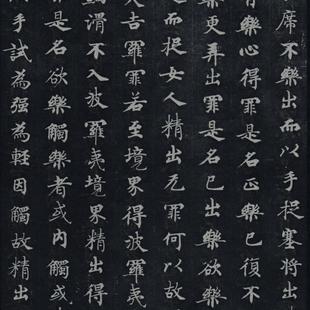 席不樂出而以手捉塞將出
有樂心得罪是名正樂已復不
樂更弄出罪是名已出樂欲樂
而捉女人精出无罪何以故
吉羅罪若至境界得波羅夷
謂不入波羅夷境界精出得
罪是名欲樂觸樂者或內觸或
手試為強為軽因觸故精出